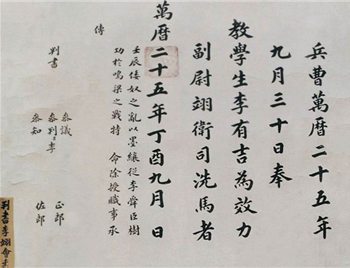 兵曹萬曆二十五年
九月三十日奉
教學生李有吉為效力
副尉翊衛司洗馬者
萬曆二十五年丁酉九月 日
壬辰倭奴之亂以墨縗從李舜臣樹
功於鳴梁之戰特 命除授職事承
傳
判書 參議 正郎
參判李
參知 佐郎
判書李